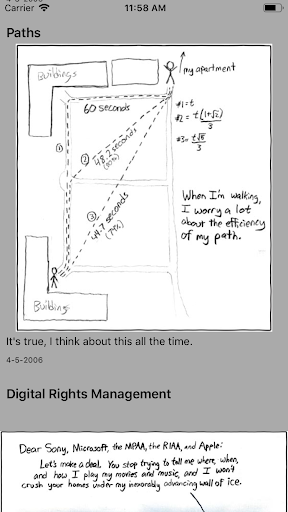 4-5-2006
Carrier
11:58 AM
Paths
Buildings
my apartment
60 seconds
#1=t
#2 = t(1+√2)/3
#3= t√5/3
①
②
48.2 seconds
(80%)
③
44.7 seconds
(74%)
When I'm walking,
I worry a lot
about the efficiency
of my path.
Buildings
It's true, I think about this all the time.
4-5-2006
Digital Rights Management
Dear Sony, Microsoft, the MPAA, the RIAA, and Apple:
Let's make a deal. You stop trying to tell me where, when,
and how I play my movies and music, and I won't
crush your homes under my inexorably advancing wall of ice.